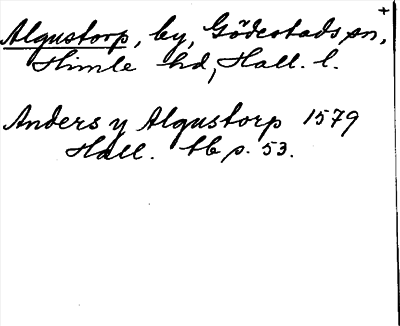 +
Algustorp, by, Gödestads sn,
Himle hd, Hall. l.
Anders y Algustorp 1579
Hall. tb p. 53.